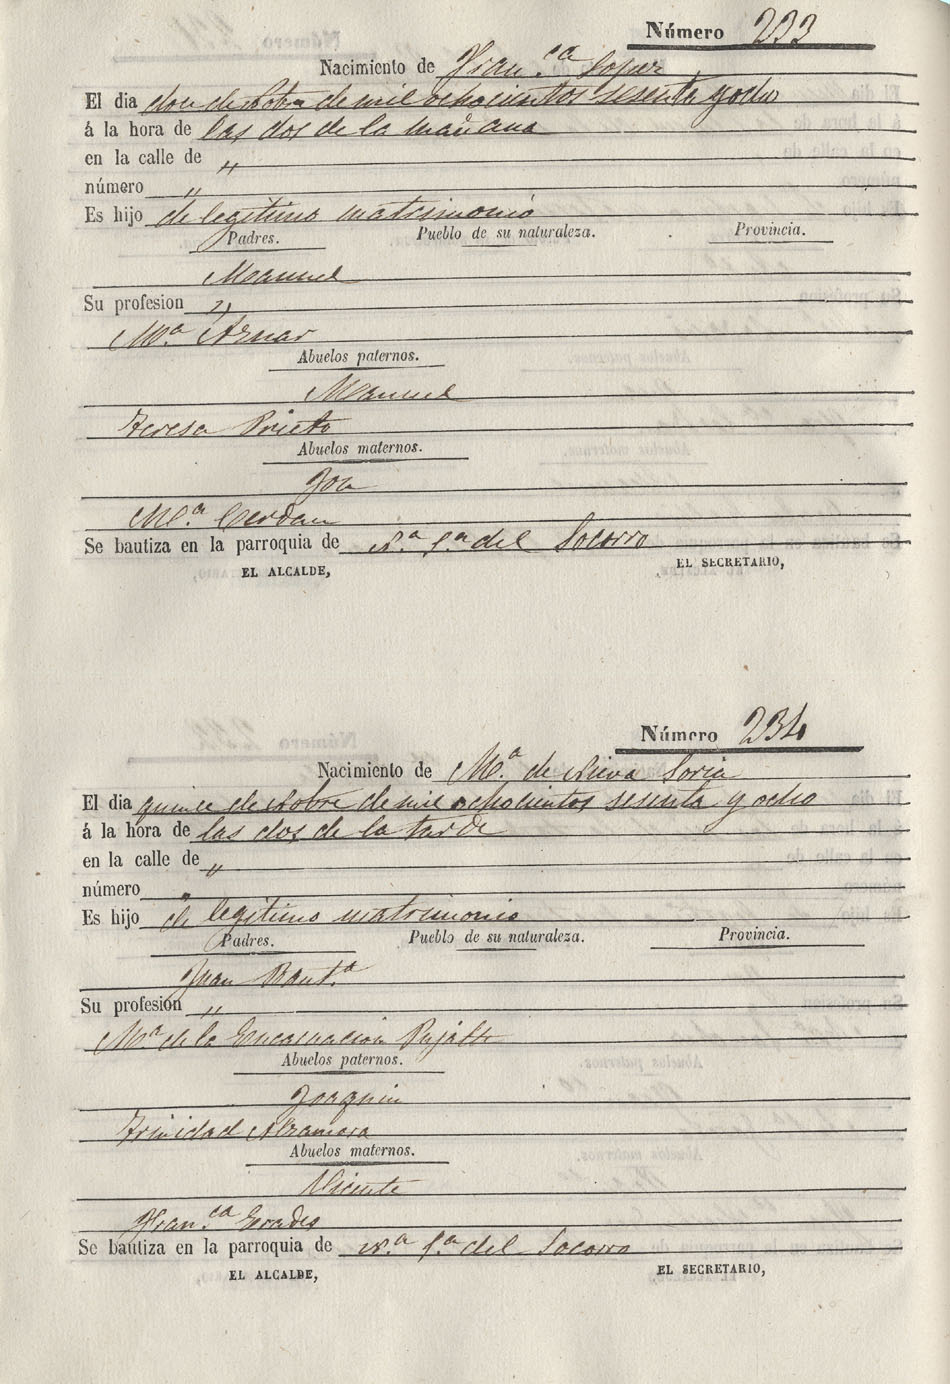 Número 233
Nacimiento de Fran.ca Lopez
El dia doce de Obre de mil ochocientos sesenta y ocho
á la hora de las dos de la mañana
en la calle de "
número "
Es hijo de legitimo matrimonio
Padres. Pueblo de su naturaleza. Provincia.
Manuel
Su profesion "
M.a Aznar
Abuelos paternos.
Manuel
Teresa Prieto
Abuelos maternos.
M.a Cerdan
Se bautiza en la parroquia de N.a S.a del Socorro
EL ALCALDE, EL SECRETARIO,
Número 234
Nacimiento de M.a de Nieva Soria
El dia quince de Obre de mil ochocientos sesenta y ocho
á la hora de las dos de la tarde
en la calle de "
número "
Es hijo de legitimo matrimonio
Padres. Pueblo de su naturaleza. Provincia.
Juan Baut.a
Su profesion "
M.a de la Encarnacion Pujalte
Abuelos paternos.
Joaquin
Trinidad
Abuelos maternos.
Vicente
Fran.ca Erades
Se bautiza en la parroquia de N.a S.a del Socorro
EL ALCALDE, EL SECRETARIO,